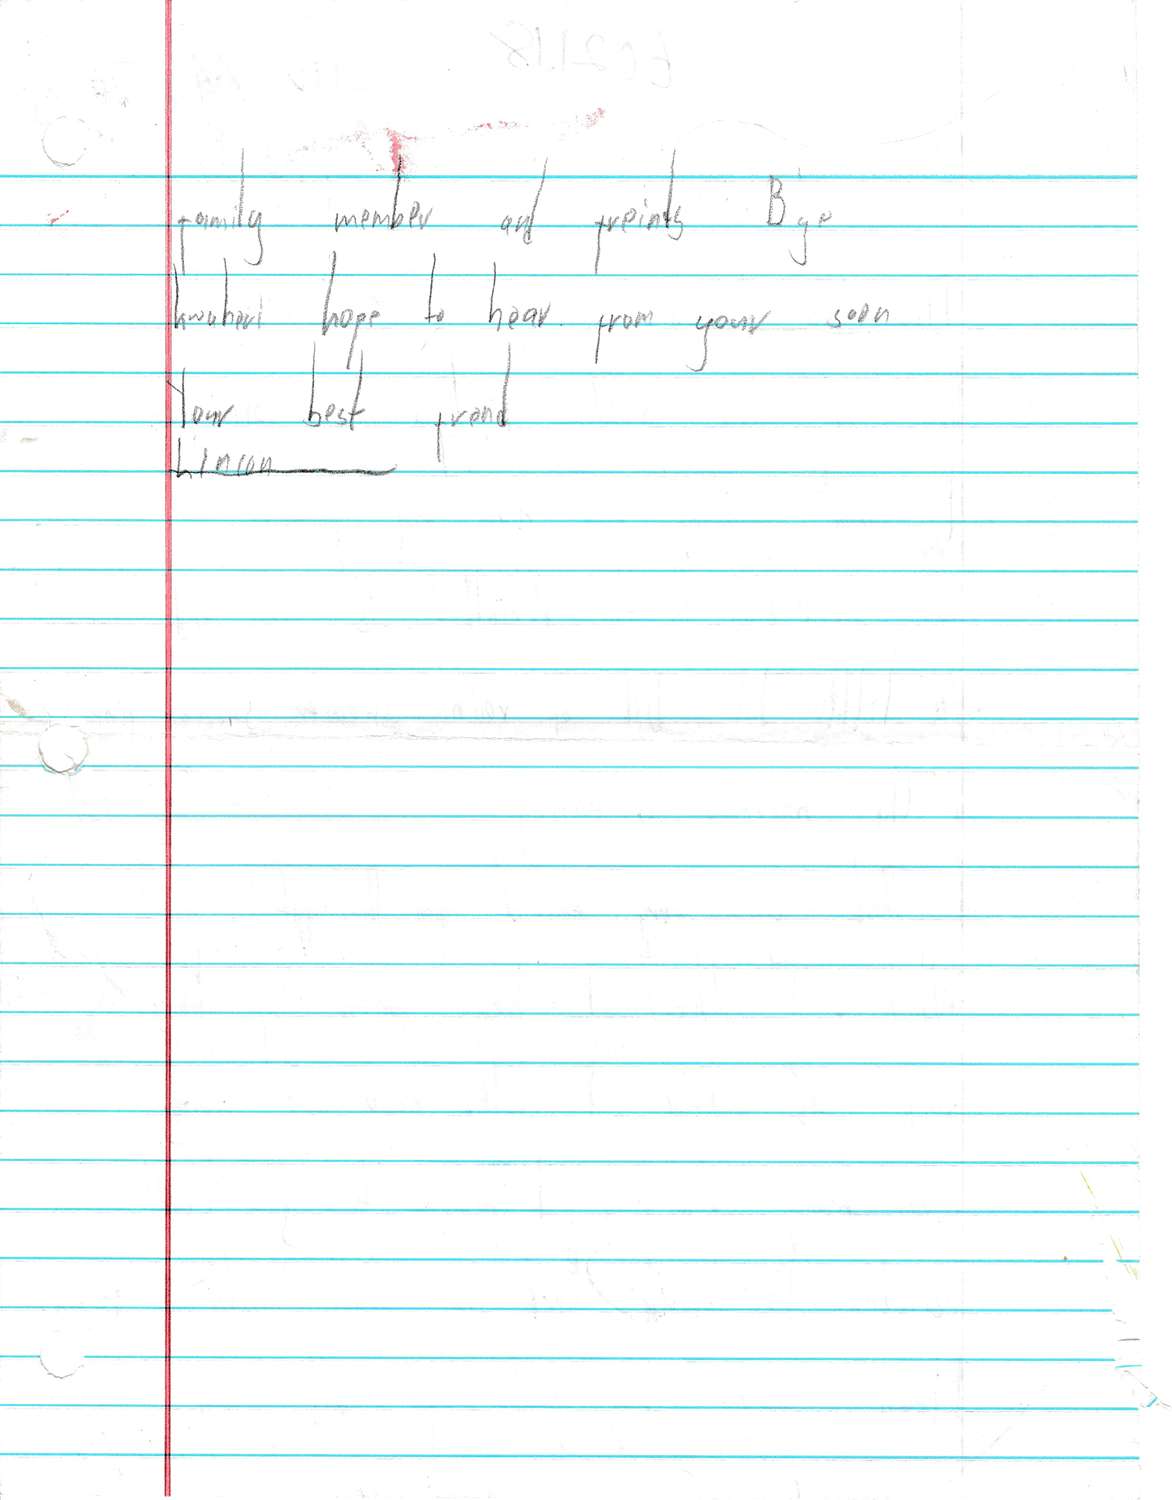 family member and freinds Bye
kwuheri hope to hear from your soon
Your best frend
Lincon